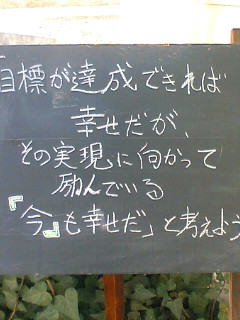 「目標が達成できれば
幸せだが、
その実現に向かって
励んでいる
『今』も幸せだ」と考えよう